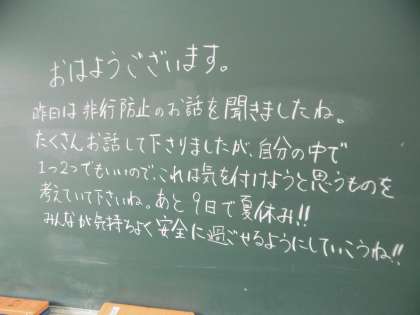 おはようございます。
昨日は非行防止のお話を聞きましたね。
たくさんお話して下さりましたが、自分の中で
1つ2つでもいいので、これは気を付けようと思うものを
考えていて下さいね。あと9日で夏休み!!
みんなが気持ちよく安全に過ごせるようにしていこうね!!